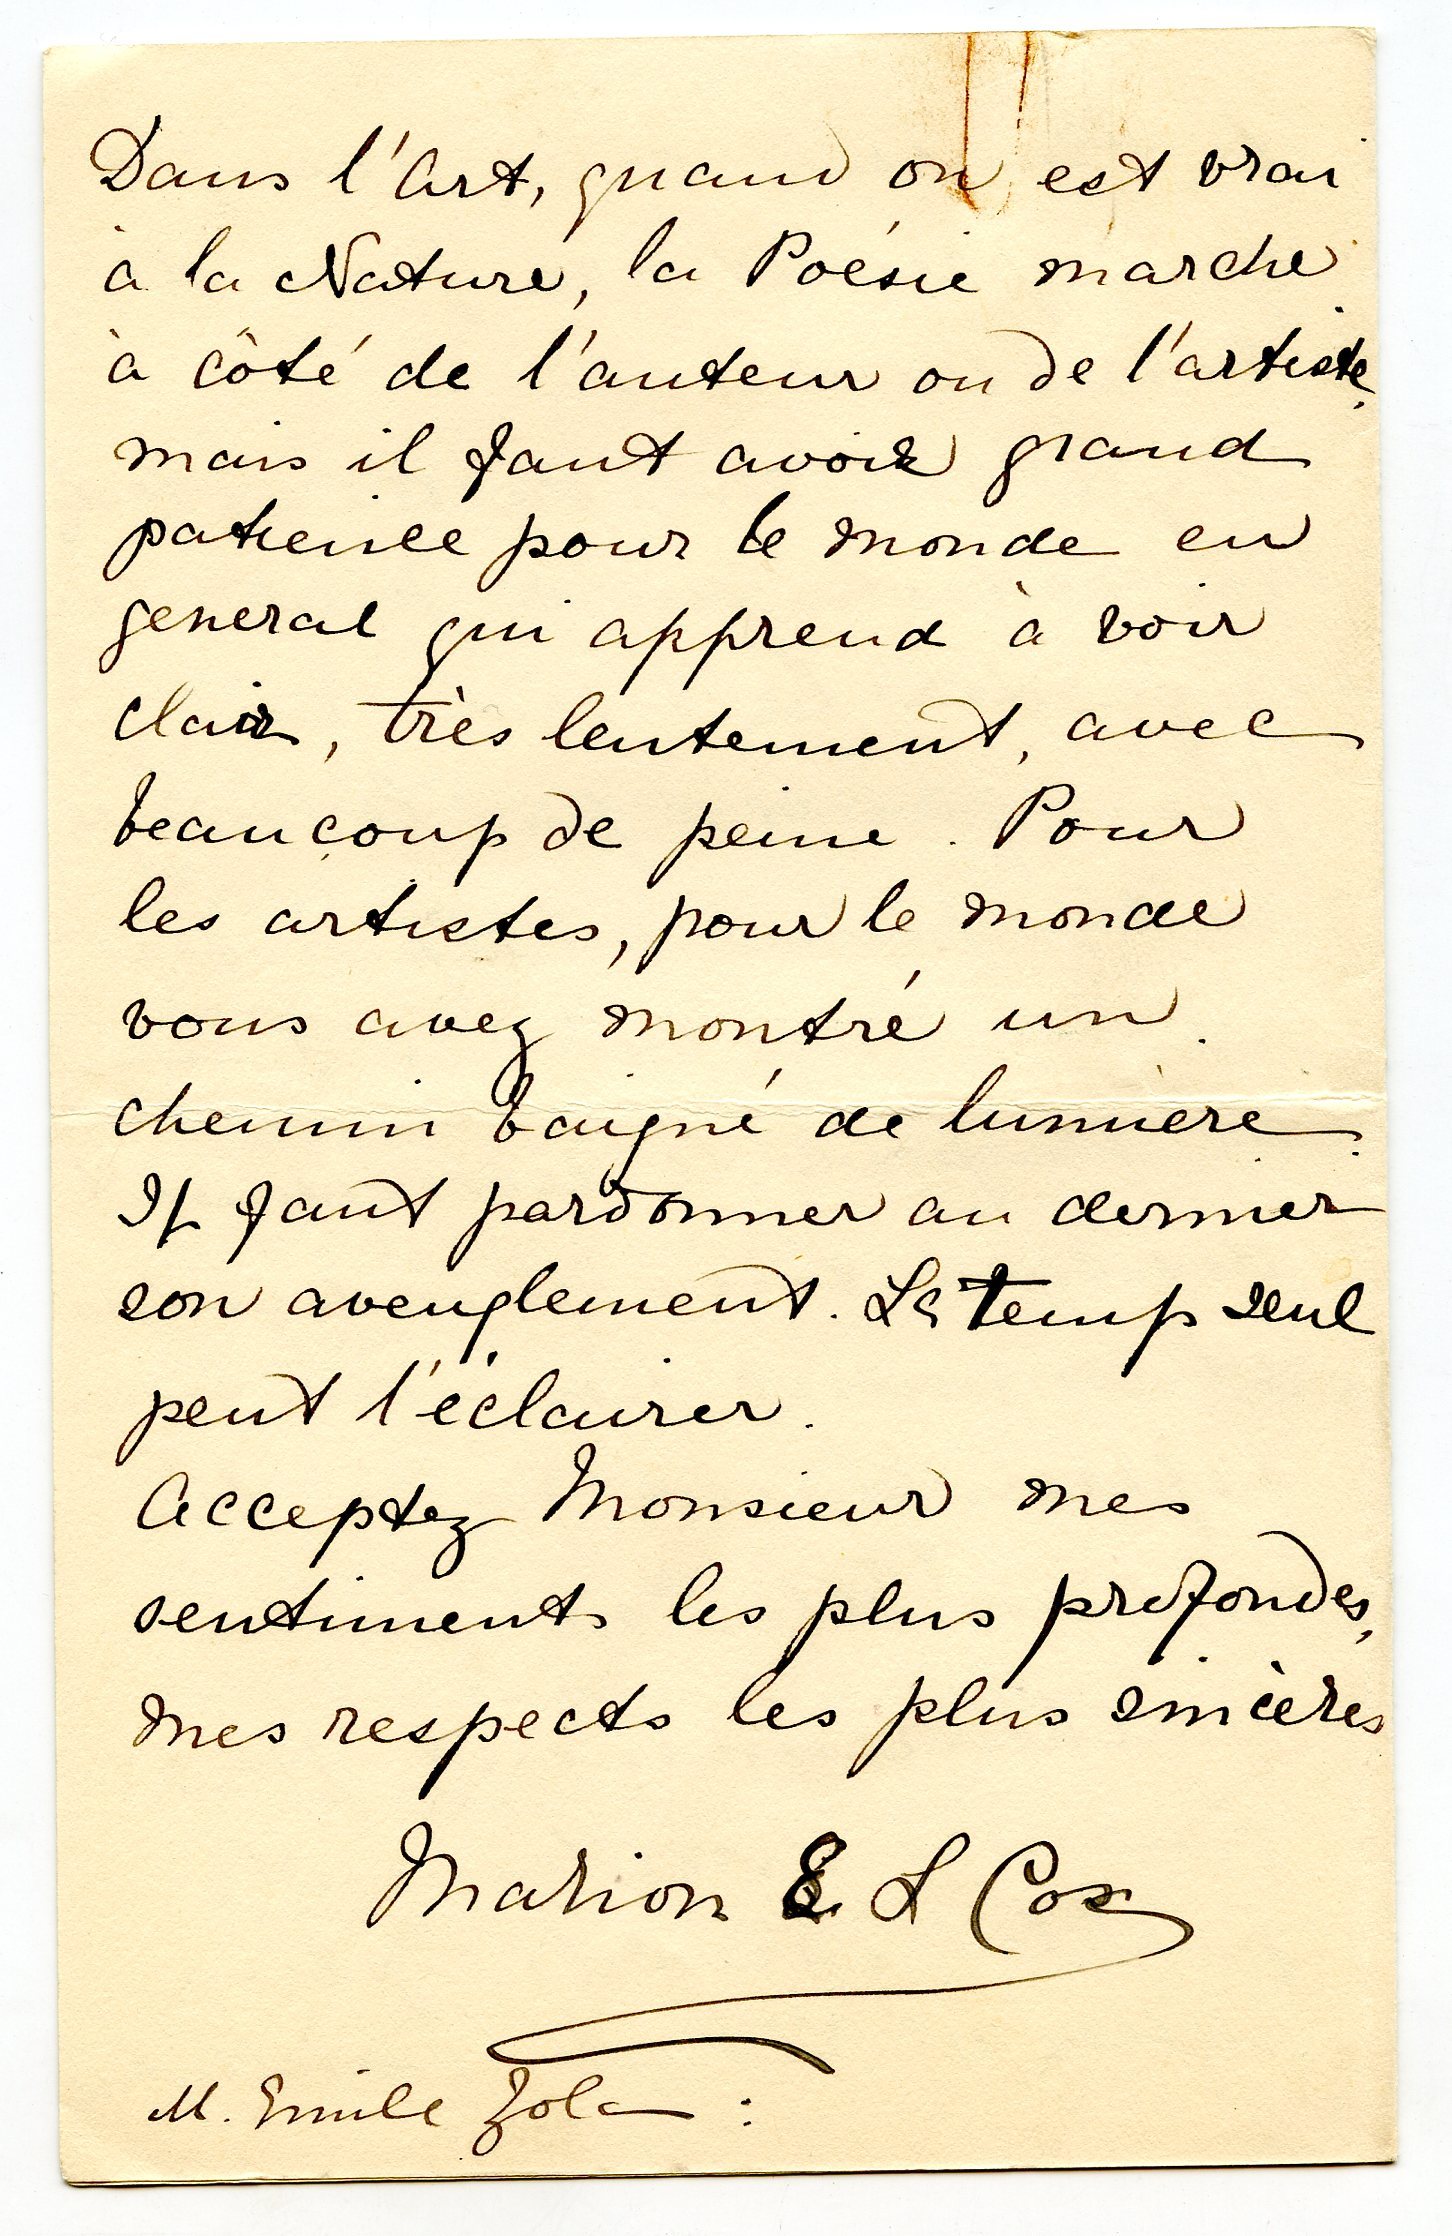 Dans l'Art, quand on est vrai
à la Nature, la Poésie marche
à côté de l'auteur ou de l'artiste,
mais il faut avoir grand
patience pour le monde en
general qui apprend à voir
clair, très lentement, avec
beaucoup de peine. Pour
les artistes, pour le monde
vous avez montré un
chemin baigné de lumière.
Il faut pardonner au dernier
son aveuglement. Le temps seul
peut l'éclairer.
Acceptez Monsieur mes
sentiments les plus profondes,
mes respects les plus sincères
Marion E. L Cox
M. Emile Zola :